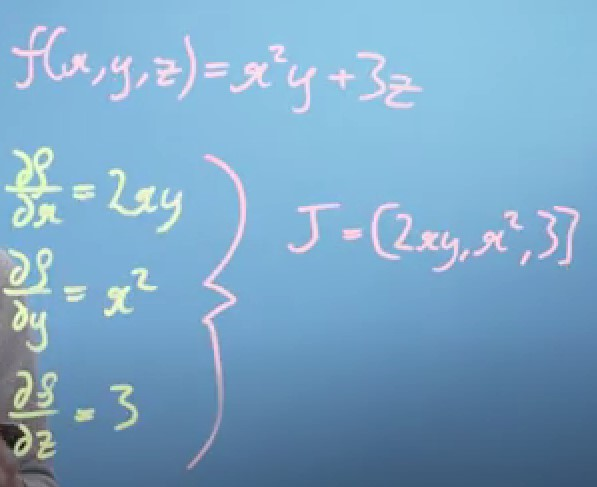 f(x, y, z) = x²y + 3z
∂f/∂x = 2xy
∂f/∂y = x²
∂f/∂z = 3
J = [2xy, x², 3]